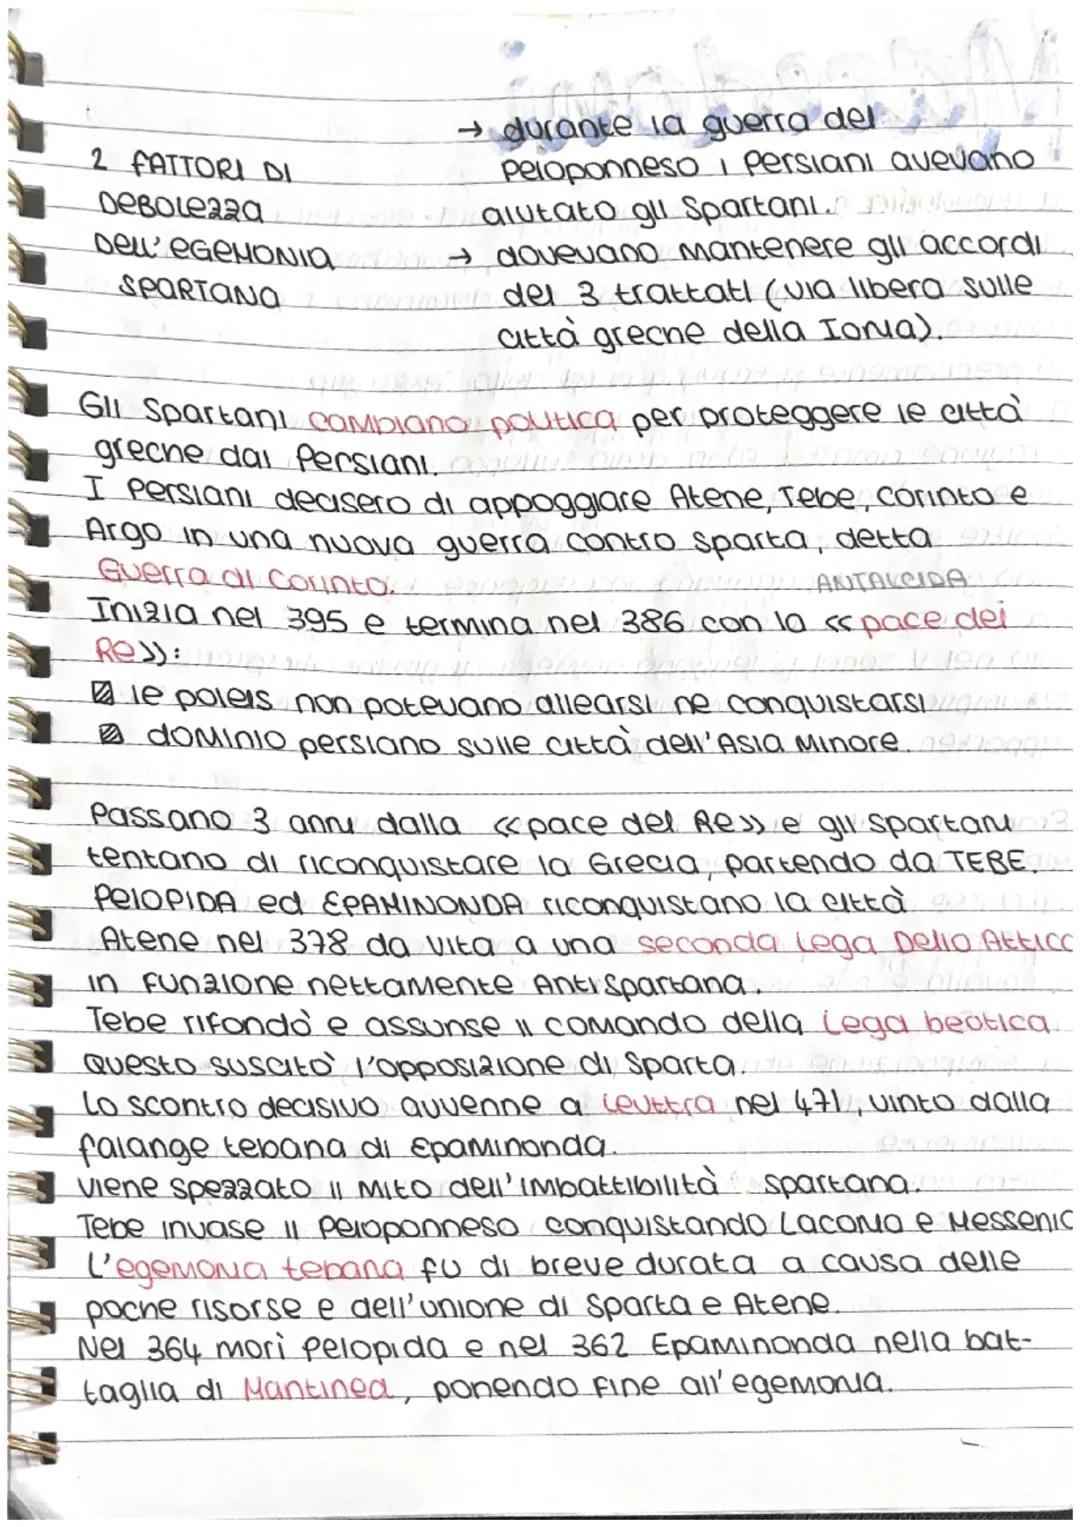 2 FATTORI DI
DEBOLEZZA
DELL'EGEMONIA
SPARTANA
→ durante la guerra del
Peloponneso i Persiani avevano
aiutato gli Spartani.
→ dovevano mantenere gli accordi
dei 3 trattati (via libera sulle
città greche della Ionia).
Gli Spartani cambiano politica per proteggere le città
greche dai Persiani.
I Persiani decisero di appoggiare Atene, Tebe, Corinto e
Argo in una nuova guerra contro Sparta, detta
Guerra di Corinto.
ANTALCIDA
Inizia nel 395 e termina nel 386 con la «pace dei
Re»:
le poleis non potevano allearsi ne conquistarsi
dominio persiano sulle città dell'Asia Minore.
Passano 3 anni dalla «pace del Re» e gli Spartani
tentano di riconquistare la Grecia, partendo da TEBE.
PELOPIDA ed EPAMINONDA riconquistano la città
Atene nel 378 da vita a una seconda Lega Delio Attica
in funzione nettamente AntiSpartana.
Tebe rifondò e assunse il comando della Lega beotica.
Questo suscitò l'opposizione di Sparta.
Lo scontro decisivo avvenne a Leuttra nel 471, vinto dalla
falange tebana di Epaminonda.
Viene spezzato il mito dell'imbattibilità spartana.
Tebe invase il Peloponneso conquistando Laconia e Messenia
L'egemonia tebana fu di breve durata a causa delle
poche risorse e dell'unione di Sparta e Atene.
Nel 364 morì Pelopida e nel 362 Epaminonda nella bat-
taglia di Mantinea, ponendo fine all'egemonia.